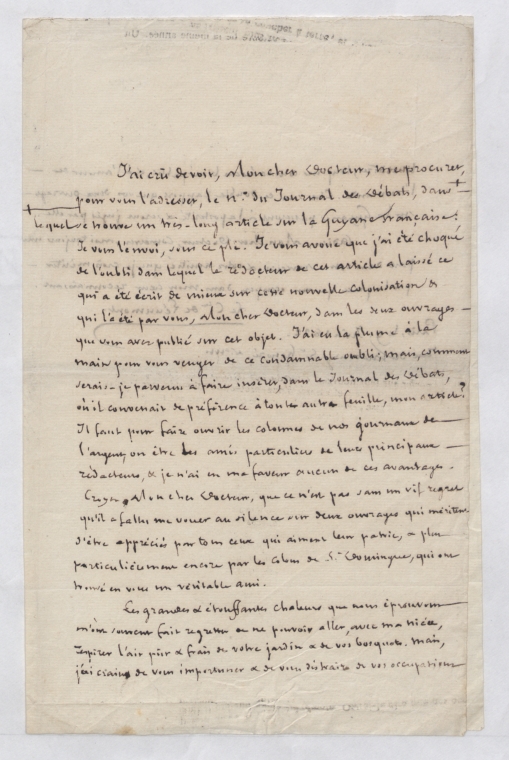 J'ai crû devoir, Mon cher Docteur, me procurer,
pour vous l'adresser, le n.° du Journal des Débats, dans
lequel se trouve un très-long article sur la Guyane française.
Je vous l'envoi, sous ce pli. Je vous avoue que j'ai été choqué
de l'oubli dans lequel le rédacteur de cet article a laissé ce
qui a été écrit de mieux sur cette nouvelle colonisation &
qui l'a été par vous, Mon cher Docteur, dans les deux ouvrages
que vous avez publié sur cet objet. J'ai eu la plume à la
main pour vous venger de ce condamnable oubli, mais, comment
serais-je parvenu à faire insérer, dans le Journal des Débats,
où il convenait de préférence à toute autre feuille, mon article?
Il faut pour faire ouvrir les colonnes de nos journaux de
l'argent, ou être les amis particuliers de leurs principaux
rédacteurs, & je n'ai en ma faveur aucun de ces avantages.
Croyez, Mon cher Docteur, que ce n'est pas sans un vif regret
qu'il a fallu me vouer au silence sur deux ouvrages qui méritent
d'être appréciés par tous ceux qui aiment leur patrie, & plus
particulièrement encore par les colons de S.t Domingue, qui ont
trouvé en vous un véritable ami.
Les grandes & étouffantes chaleurs que nous éprouvons
m'ont souvent fait regretter de ne pouvoir aller, avec ma nièce,
respirer l'air pûr & frais de votre jardin & de vos bosquets. Mais,
j'ai craint de vous importuner & de vous distraire de vos occupations